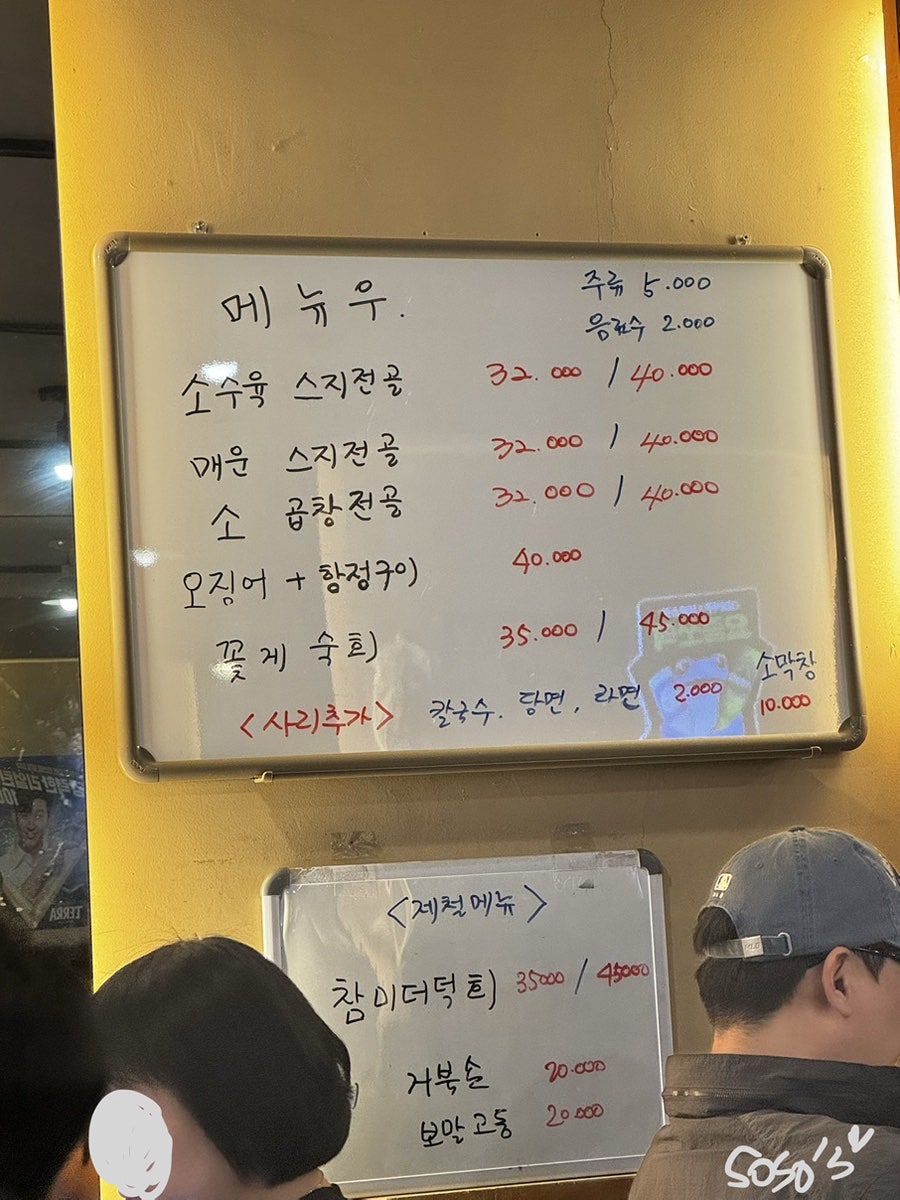 메뉴우.
주류 5.000
음료수 2.000
소수육 스지전골 32.000 / 40.000
매운 스지전골 32.000 / 40.000
소 곱창전골 32.000 / 40.000
오징어 + 항정구이 40.000
꽃게 숙회 35.000 / 45.000
소막창
<사리추가> 칼국수. 당면, 라면 2.000 10.000
<제철메뉴>
참미더덕회 35000 / 45000
거북손 20.000
보말고동 20.000
TERRA
soso's